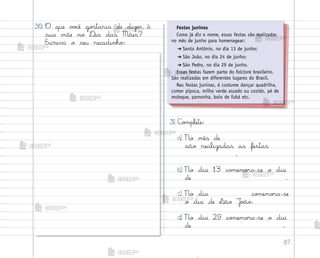 30. O que você gostaria de dizer à
sua mãe no Dia das Mães?
Escreva o seu recadinho.
Festas juninas
Como já diz o nome, essas festas são realizadas
no mês de junho para homenagear:
➜ Santo Antônio, no dia 13 de junho;
➜ São João, no dia 24 de junho;
➜ São Pedro, no dia 29 de junho.
Essas festas fazem parte do folclore brasileiro.
São realizadas em diferentes lugares do Brasil.
Nas festas juninas, é costume dançar quadrilha,
comer pipoca, milho verde assado ou cozido, pé de
moleque, pamonha, bolo de fubá etc.
31. Complete:
a) No mês de
são realizadas as festas
.
b) No dia 13 comemora-se o dia
de .
c) No dia comemora-se
o dia de São João.
d) No dia 29 comemora-se o dia
de .
87